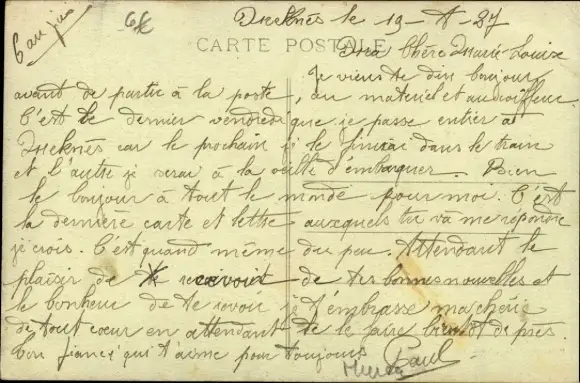 6 au jus
6€
Meknès le 19-8-27
CARTE POSTALE
Ma Chère Marie Louise
Je viens te dire bonjour
avant de partir à la poste, au matériel et au
C'est le dernier vendredi que je passe entier à
Meknès car le prochain je le finirai dans le train
et l'autre je serai à la veille d'embarquer. Bien
le bonjour à tout le monde pour moi. C'est
la dernière carte et lettre auxquels tu va me répondre
je crois. C'est quand même du peu. Attendant le
plaisir de recevoir de tes bonnes nouvelles et
le bonheur de te revoir je t'embrasse ma chérie
de tout cœur en attendant de le faire bientôt de près
Ton fiancé qui t'aime pour toujours
Paul